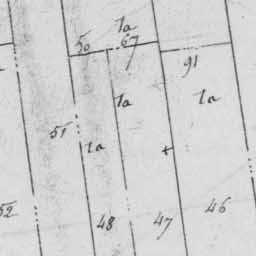 1a
50 67
91
1a 1a
51
1a
52 46
48 47